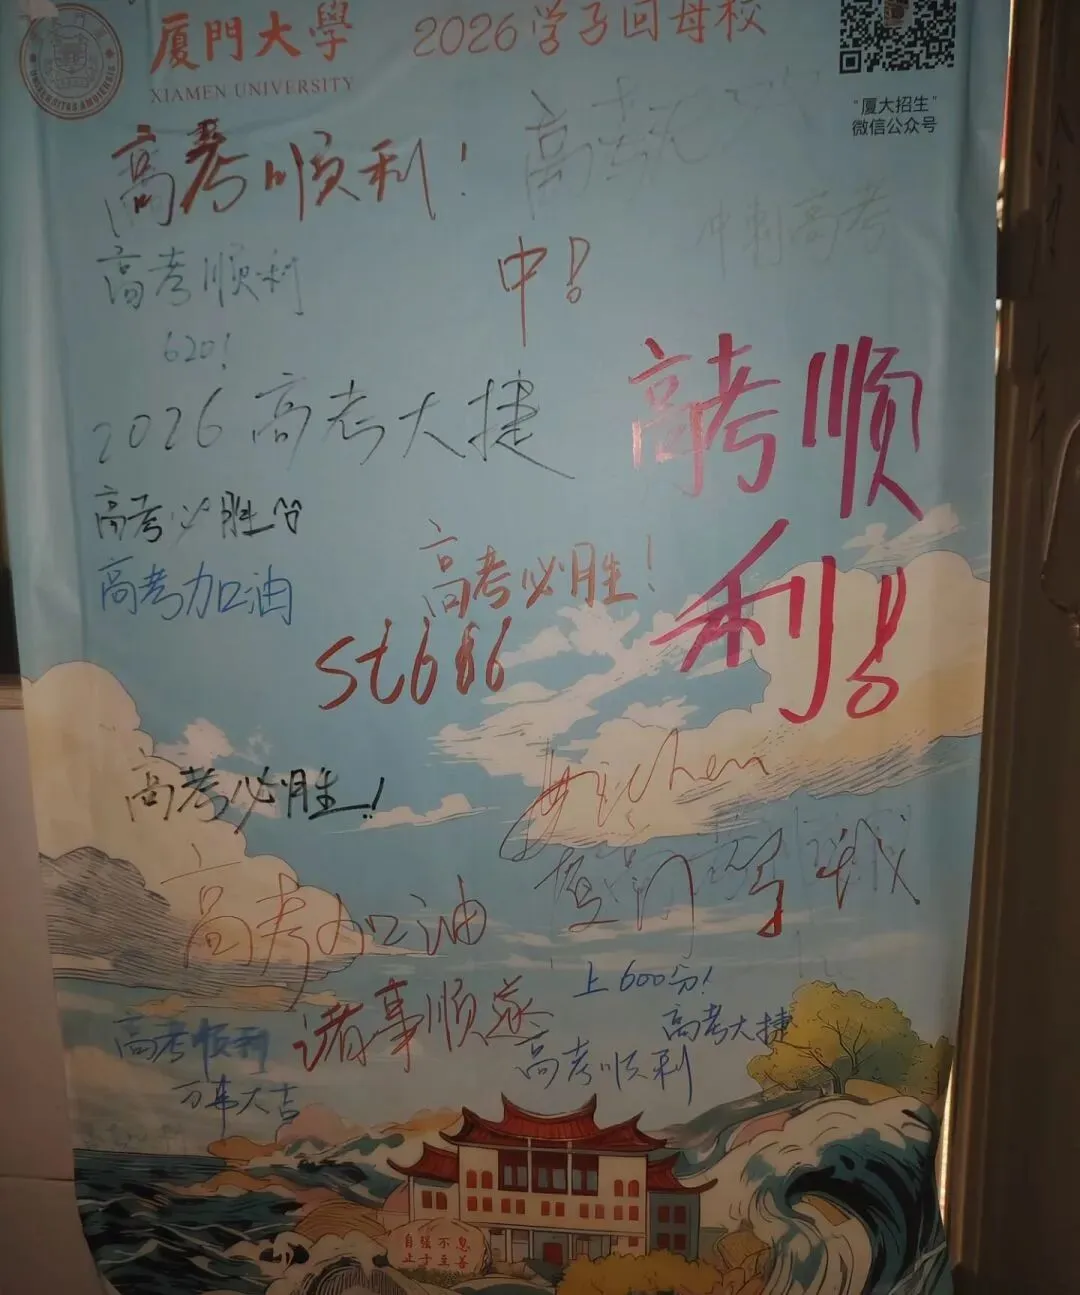 厦門大學
XIAMEN UNIVERSITY
2026学子回母校
"厦大招生"
微信公众号
高考顺利!
中!
冲刺高考
高考顺利
620!
2026高考大捷
高考顺利!
高考必胜
高考必胜!
高考加油
st666
高考必胜!
chen
高考加油
上600分!
诸事顺遂
高考大捷
高考顺利
高考顺利
万事大吉
自强不息
止于至善